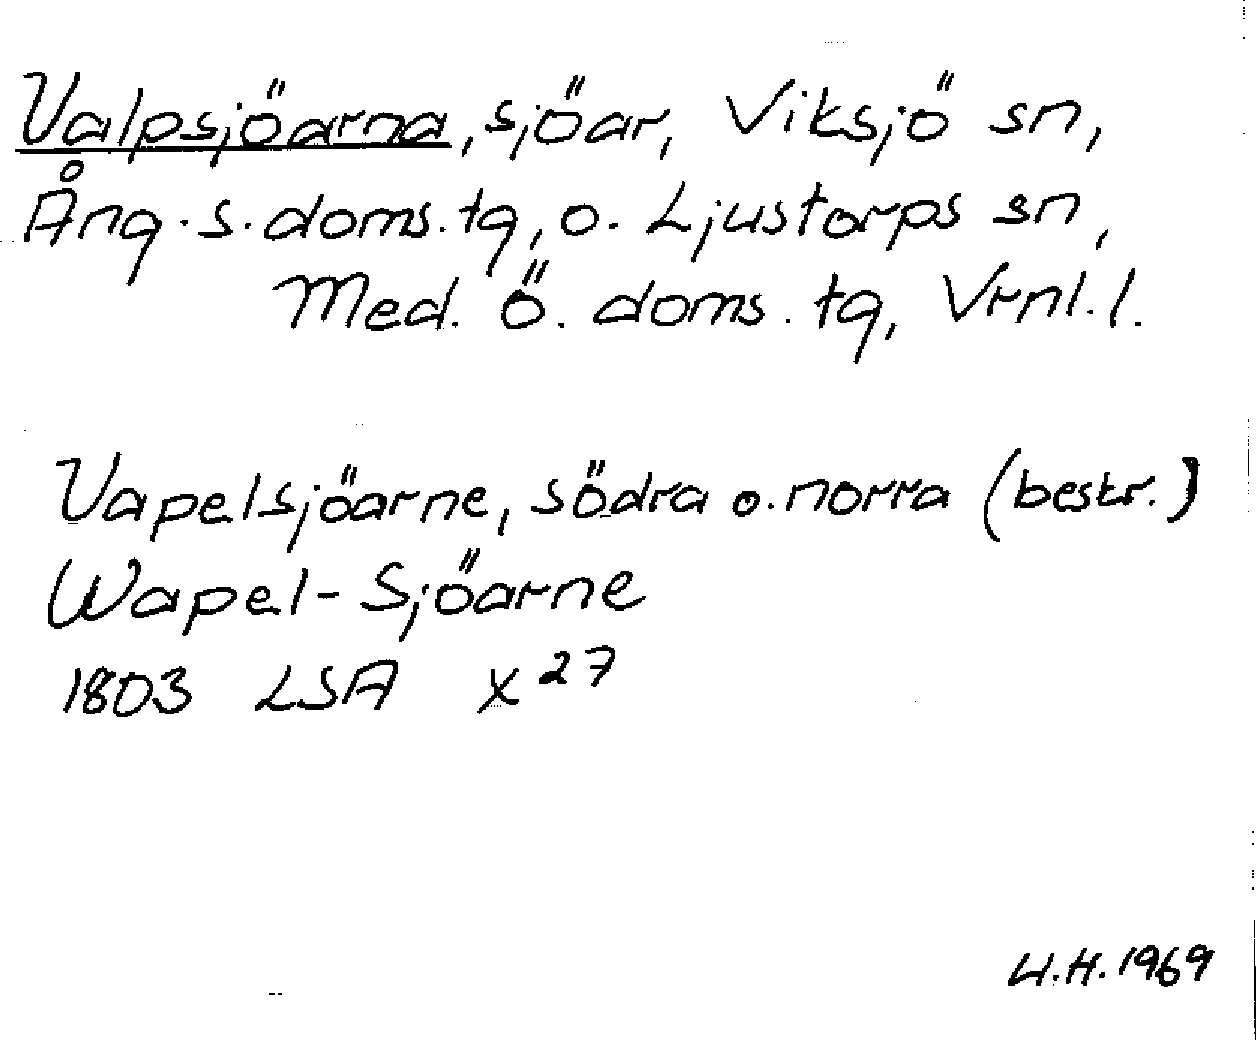 Valpsjöarna, sjöar, Viksjö sn,
Ång. s. doms. tg, o. Ljustorps sn,
Med. ö. doms. tg, Vrnl. l.
Vapelsjöarne, södra o. norra (bestr.)
Wapel-Sjöarne
1803 LSA X 27
U.H. 1969